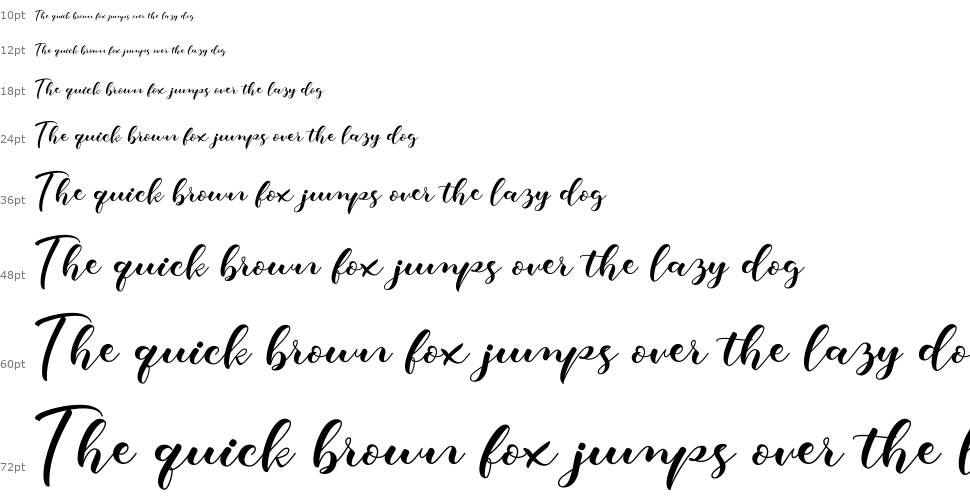 10pt The quick brown fox jumps over the lazy dog
12pt The quick brown fox jumps over the lazy dog
18pt The quick brown fox jumps over the lazy dog
24pt The quick brown fox jumps over the lazy dog
36pt The quick brown fox jumps over the lazy dog
48pt The quick brown fox jumps over the lazy dog
60pt The quick brown fox jumps over the lazy do
72pt The quick brown fox jumps over the l